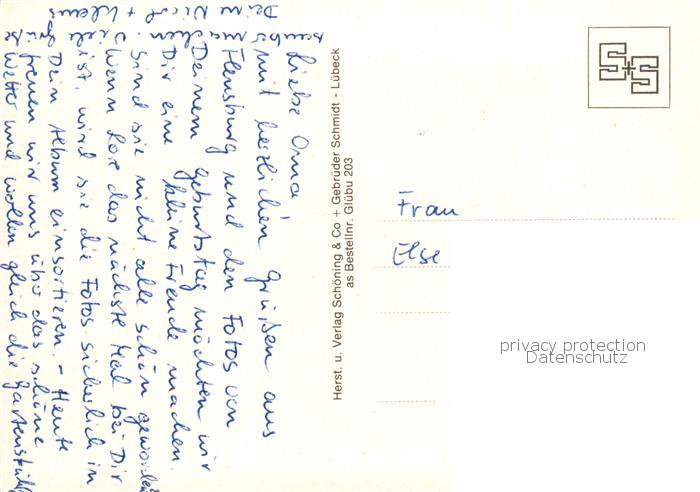 Liebe Oma
mit herzlichen Grüßen aus
Flensburg und den Fotos von
Deinem Geburtstag möchten wir
Dir eine kleine Freude machen.
Sind sie nicht alle schön geworden
Wenn Lore das nächste Mal bei Dir
ist, wird sie die Fotos sicherlich in
Dein Album einsortieren. - Heute
freuen wir uns über das schöne
Wetter und wollen gleich die Gartenstühle
Deine
Herst. u. Verlag Schöning & Co + Gebrüder Schmidt - Lübeck
as Bestellnr. Glübu 203
S+S
Frau
Else
privacy protection
Datenschutz